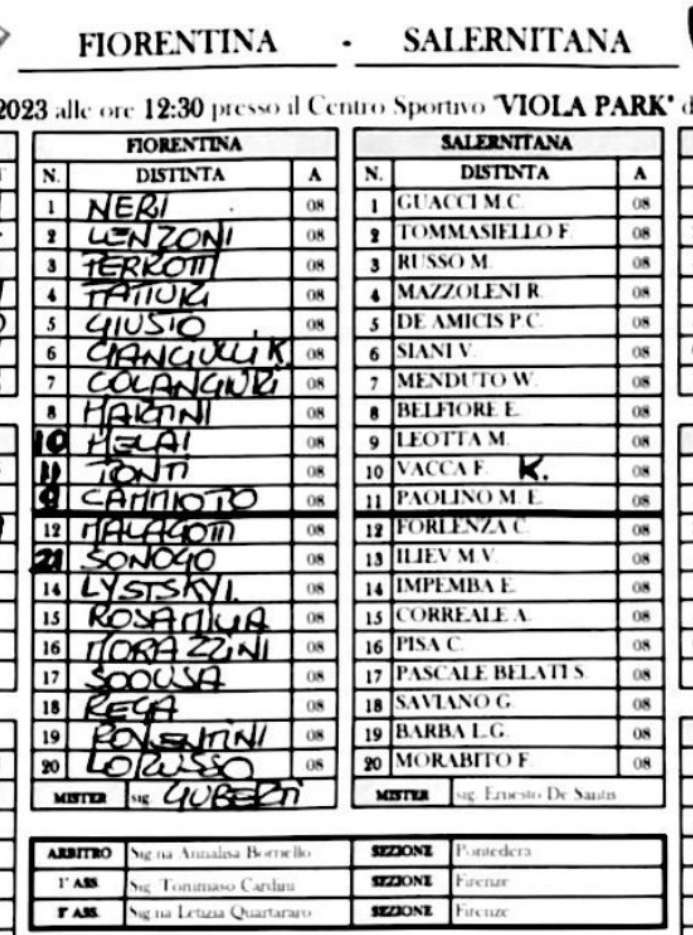 FIORENTINA - SALERNITANA
2023 alle ore 12:30 presso il Centro Sportivo "VIOLA PARK" d
FIORENTINA SALERNITANA
N. DISTINTA A N. DISTINTA A
1 NERI 08 1 GUACCI M.C. 08
2 LENZONI 08 2 TOMMASIELLO F. 08
3 PERROTTI 08 3 RUSSO M. 08
4 08 4 MAZZOLENI R. 08
5 GIUSTO 08 5 DE AMICIS P.C. 08
6 GIANGIULLI K. 08 6 SIANI V. 08
7 COLANGIURI 08 7 MENDUTO W. 08
8 MARTINI 08 8 BELFIORE E. 08
10 MELAI 08 9 LEOTTA M. 08
11 TONTI 08 10 VACCA F. K. 08
9 CAMMIOTO 08 11 PAOLINO M. E. 08
12 MALAGOTTI 08 12 FORLENZA C. 08
21 SONOGO 08 13 ILIEV M.V. 08
14 LYSTSKYI. 08 14 IMPEMBA E. 08
15 ROSAMILIA 08 15 CORREALE A. 08
16 MORAZZINI 08 16 PISA C. 08
17 08 17 PASCALE BELATI S. 08
18 REGA 08 18 SAVIANO G. 08
19 08 19 BARBA L.G. 08
20 LORUSSO 08 20 MORABITO F. 08
MISTER sig. GUBERTI MISTER sig. Ernesto De Santis
ARBITRO Sig.na Annalisa Borriello SEZIONE Pontedera
1° ASS. Sig. Tommaso Cardini SEZIONE Firenze
2° ASS. Sig.na Letizia Quartararo SEZIONE Firenze